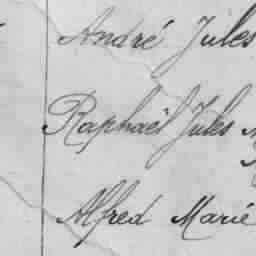 André Jules
Raphaël Jules
Alfred Marie